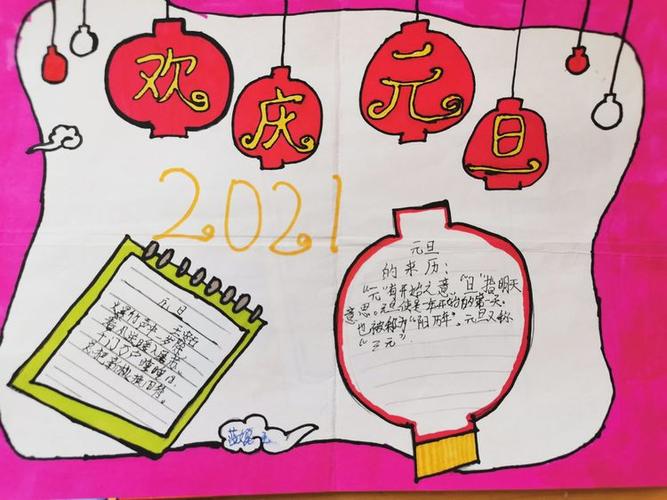 欢庆元旦
2021
元旦
的来历：
“元”有开始之意，“旦”指明天
意思。元旦便是一年开始的第一天。
也被称为“阳历年”。元旦又称
“三元”。
元日
王安石
爆竹声中一岁除
春风送暖入屠苏
千门万户曈曈日
总把新桃换旧符。